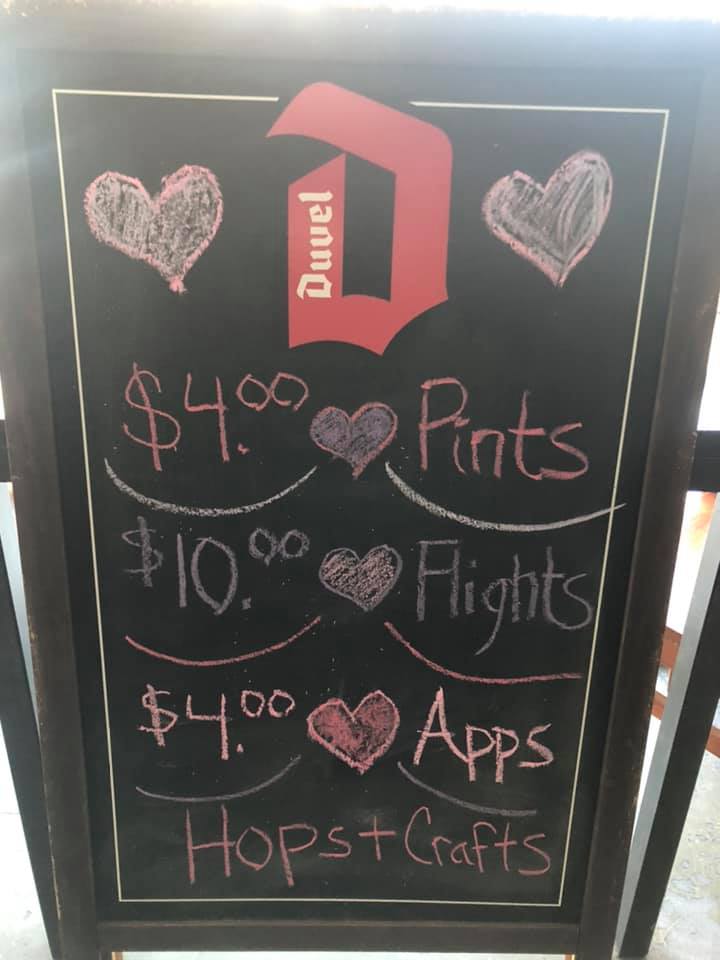 Duvel
$4.00 Pints
$10.00 Flights
$4.00 Apps
Hops + Crafts